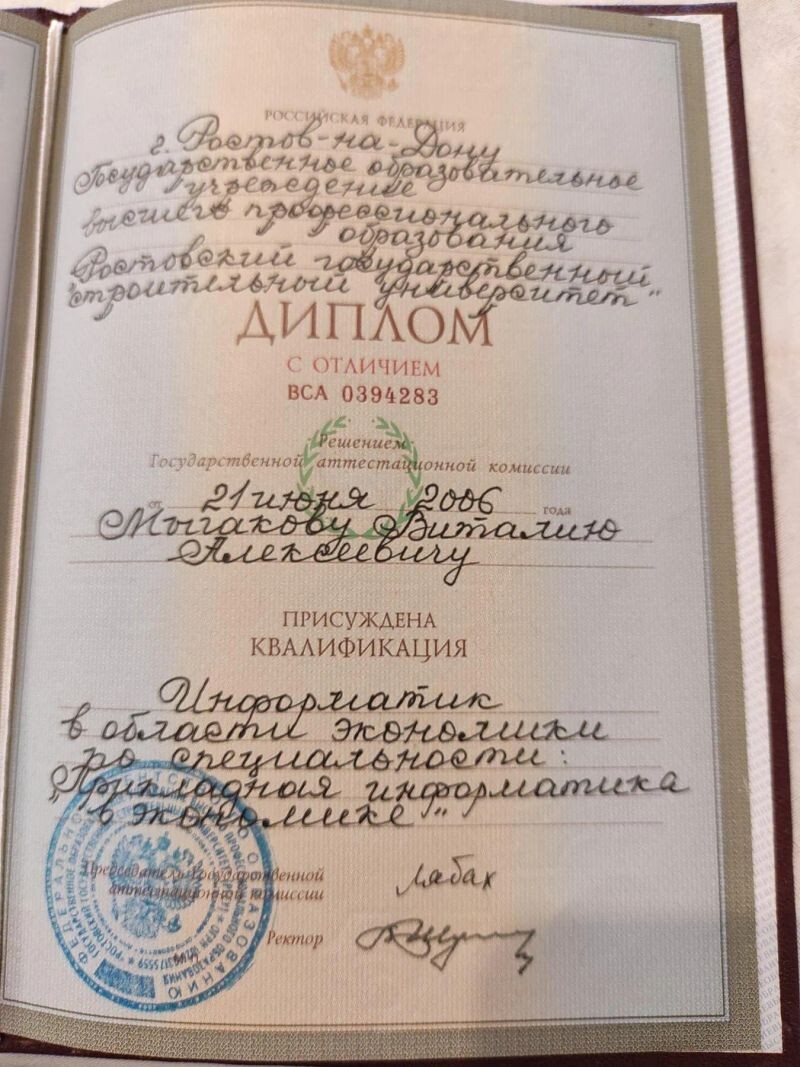 РОССИЙСКАЯ ФЕДЕРАЦИЯ
г. Ростов-на-Дону
Государственное образовательное
учреждение
высшего профессионального
образования
"Ростовский государственный
строительный университет"
ДИПЛОМ
С ОТЛИЧИЕМ
ВСА 0394283
Решением
Государственной аттестационной комиссии
от 21 июня 2006 года
Мыгакову Виталию
Алексеевичу
ПРИСУЖДЕНА
КВАЛИФИКАЦИЯ
Информатик
в области экономики
по специальности:
"Прикладная информатика
в экономике"
Председатель Государственной
аттестационной комиссии
Лябах
Ректор